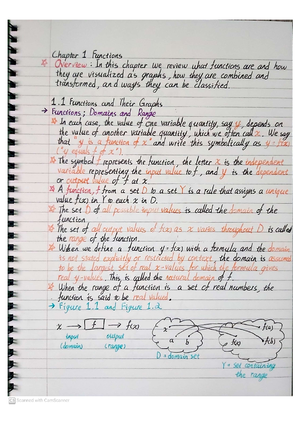 Chapter 1 Functions
* Overview: In this chapter we review what functions are and how
they are visualized as graphs, how they are combined and
transformed, and ways they can be classified.
1.1 Functions and Their Graphs
→ Functions; Domains and Range
* In each case, the value of one variable quantity, say y, depends on
the value of another variable quantity, which we often call x. We say
that "y is a function of x" and write this symbolically as y = f(x)
("y equals f of x").
* The symbol f represents the function, the letter x is the independent
variable representing the input value to f, and y is the dependent
or output value of f at x.
* A function, f from a set D to a set Y is a rule that assigns a unique
value f(x) in Y to each x in D.
* The set D of all possible input values is called the domain of the
function.
* The set of all output values of f(x) as x varies throughout D is called
the range of the function.
* When we define a function y = f(x) with a formula and the domain
is not stated explicitly or restricted by context, the domain is assumed
to be the largest set of real x-values for which the formula gives
real y-values. This is called the natural domain of f.
* When the range of a function is a set of real numbers, the
function is said to be real valued.
→ Figure 1.1 and Figure 1.2
x → f → f(x)
input output
(domain) (range)
x a b
f(a) f(x) f(b)
D = domain set
Y = set containing
the range
Scanned with CamScanner